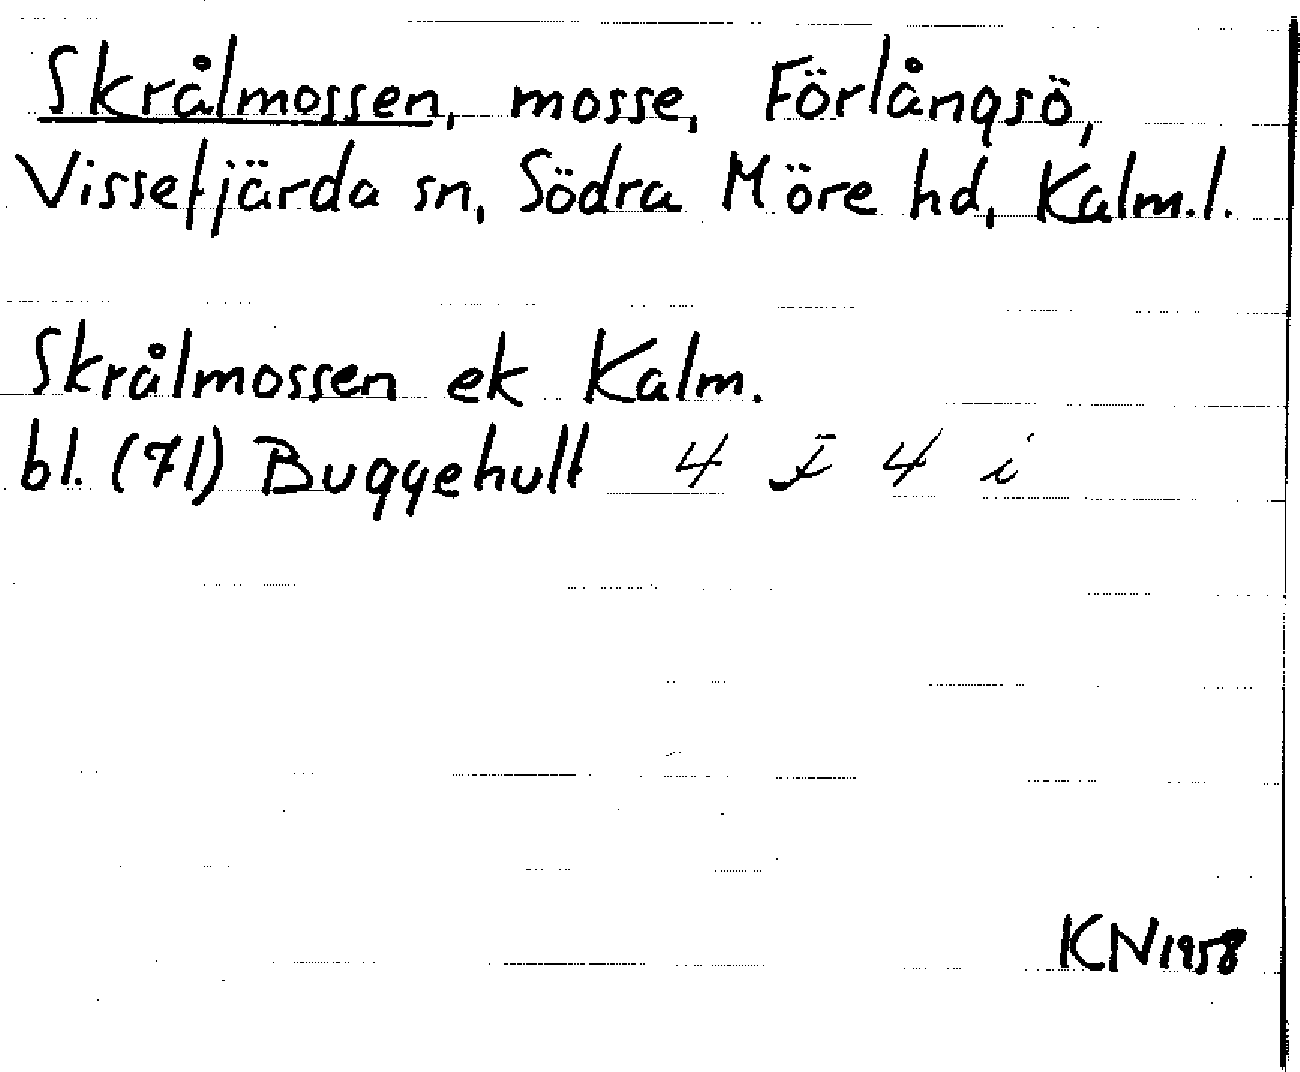 Skrålmossen, mosse, Förlångsö,
Vissefjärda sn, Södra Möre hd, Kalm.l.
Skrålmossen ek Kalm.
bl. (71) Buggehult 4 F 4 i
KN 1958